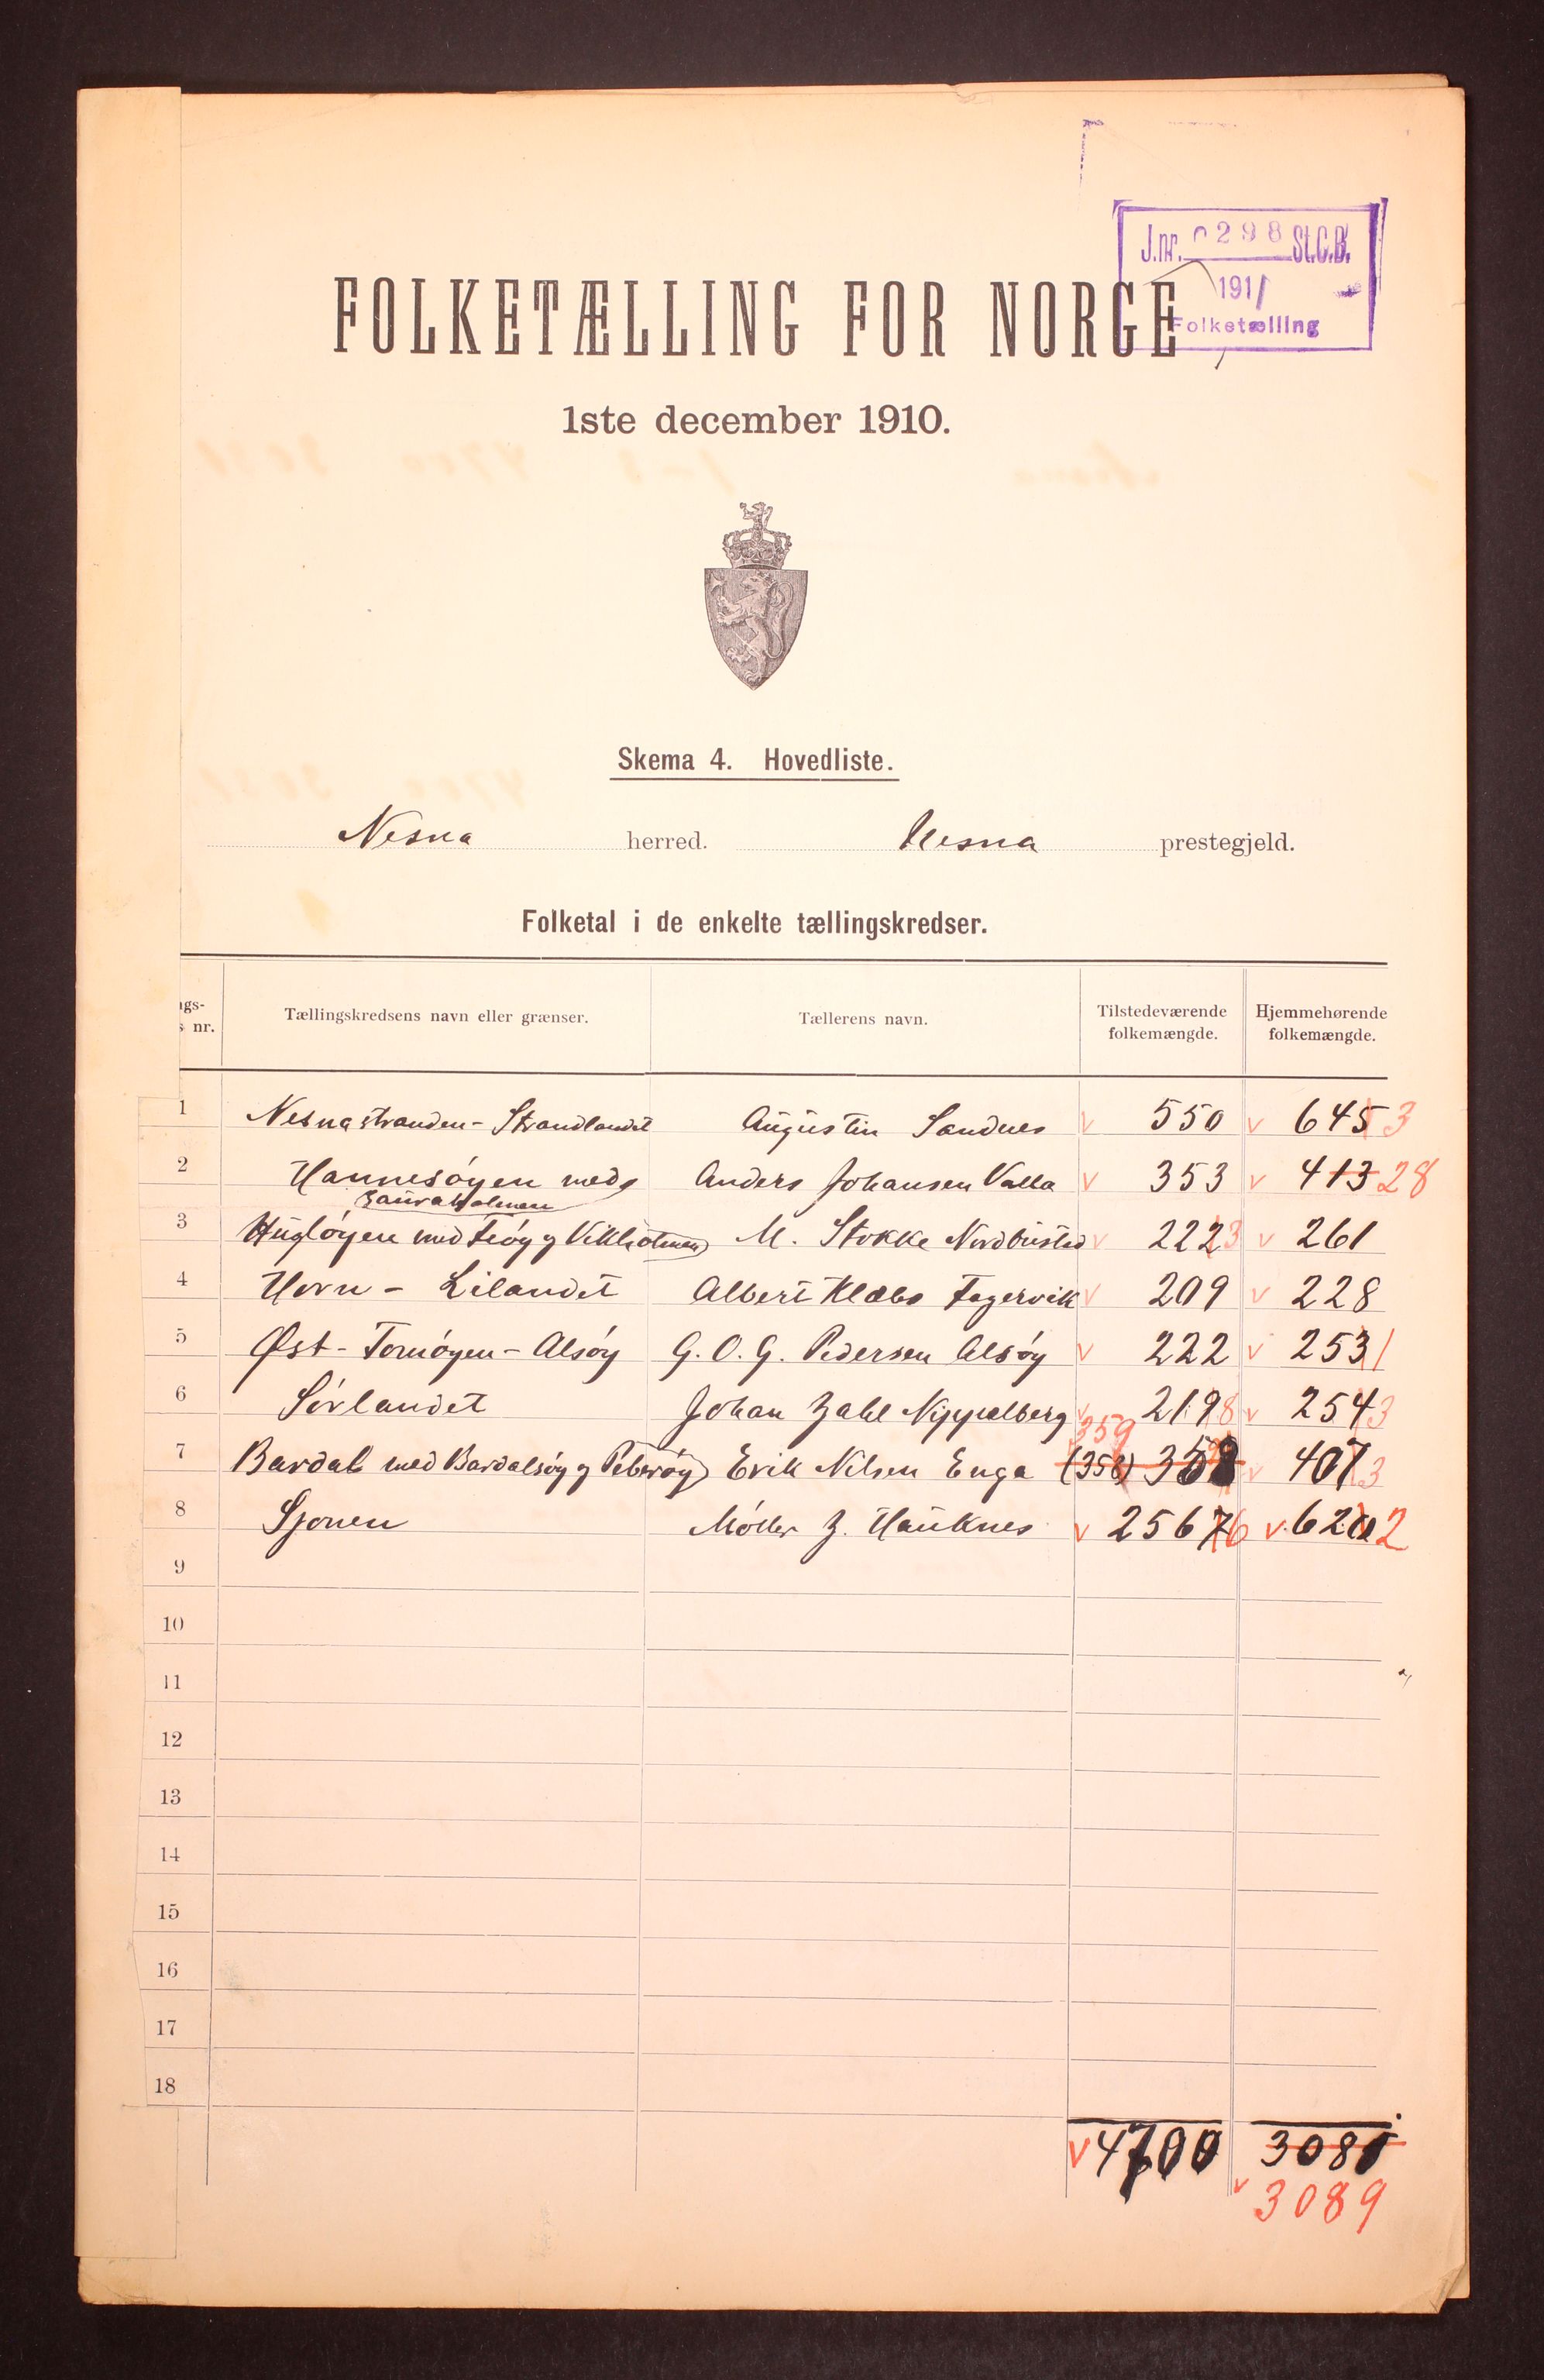 J.nr. 0298 St.C.B.
1911
Folketælling
FOLKETÆLLING FOR NORGE
1ste december 1910.
Skema 4. Hovedliste.
Nesna herred. Nesna prestegjeld.
Folketal i de enkelte tællingskredser.
ngs-
s nr. Tællingskredsens navn eller grænser. Tællerens navn. Tilstedeværende folkemængde. Hjemmehørende folkemængde.
1 Nesnastranden - Strandlandet Augustin Sandnes v 550 v 645 3
2 Hannesöyen med Anders Johansen Valla v 353 v 413 28
Zauraholmen
3 Huglöyen med og Vikholmen M. Stokke Nordbusted v 222 3 v 261
4 Horn - Lilandet Albert Klæbo Fagervik v 209 v 228
5 Øst - Tomöyen - Alsöy G. O. G. Pedersen Alsöy v 222 v 253 1
6 Sörlandet Johan Zahl Nippelberg v 219 8 v 254 3
359
7 Bardal med Bardalsöy og Erik Nilsen Enga (358) 358 v 407 3
8 Sjonen Möller Z. Hauknes v 2567 6 v 620 2
9
10
11
12
13
14
15
16
17
18
v 4700 3085
v 3089